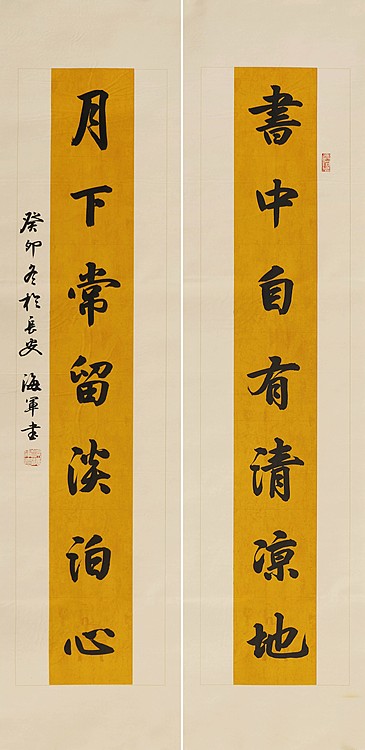 書中自有清凉地
月下常留淡泊心
癸卯冬於長安 海軍書